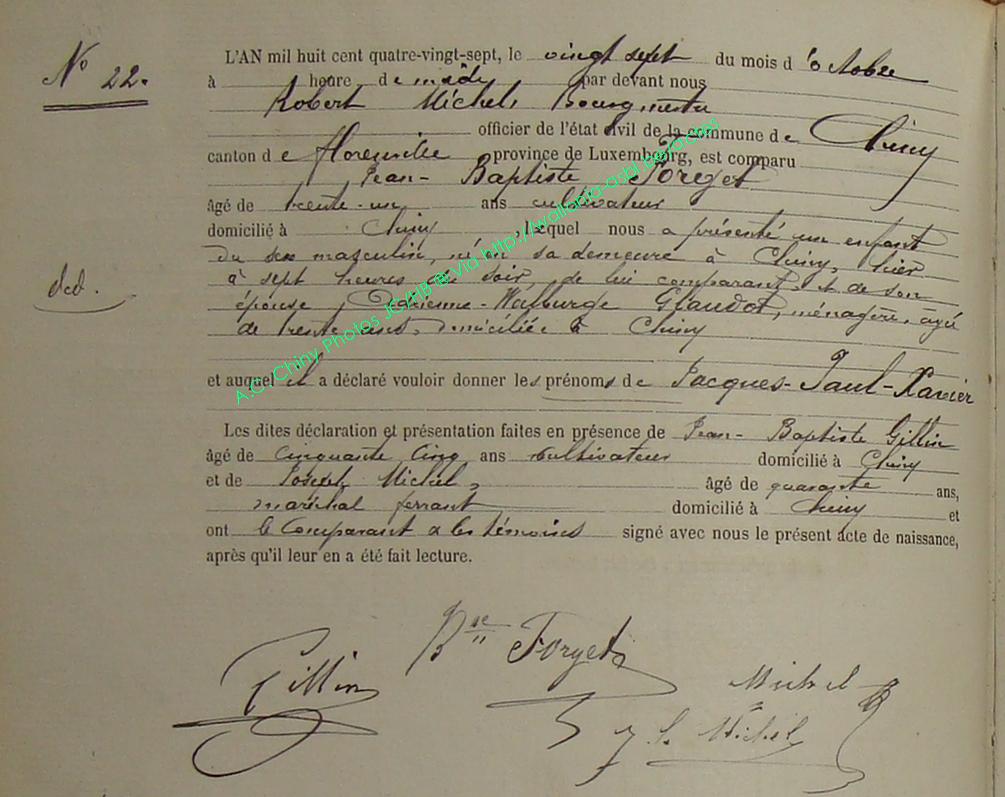 N° 22.
L'AN mil huit cent quatre-vingt-sept, le vingt sept du mois d'octobre
à heure de midy par devant nous
Robert Michel, Bourgmestre
officier de l'état civil de la commune de Chiny
canton de florenville province de Luxembourg, est comparu
Jean-Baptiste Forget
âgé de trente-un ans cultivateur
domicilié à Chiny, lequel nous a présenté un enfant
du sexe masculin, né en sa demeure à Chiny, hier
à sept heures du soir, de lui comparant et de son
épouse, Walburge Glaudot, ménagère, âgée
de trente ans, domiciliée à Chiny
dcd.
et auquel il a déclaré vouloir donner les prénoms de Jacques-Paul-Xavier
Les dites déclaration et présentation faites en présence de Jean-Baptiste Gillin
âgé de cinquante cinq ans cultivateur domicilié à Chiny
et de Joseph Michel, âgé de quarante ans,
maréchal ferrant domicilié à Chiny et
ont le Comparant & les témoins signé avec nous le présent acte de naissance,
après qu'il leur en a été fait lecture.
Bte Forget
Gillin
Michel
J. Michel